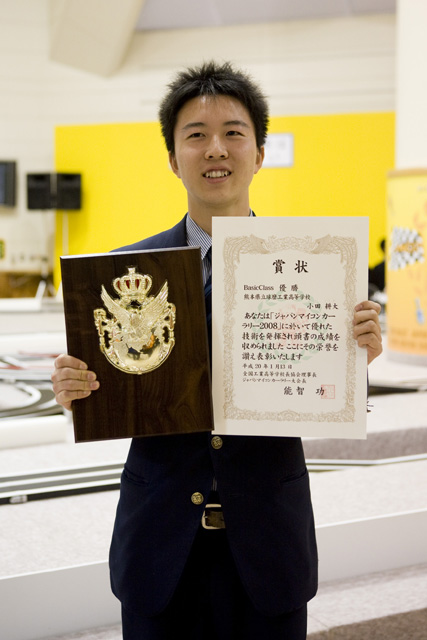 賞状
BasicClass 優勝
熊本県立球磨工業高等学校
小田 耕大
あなたは「ジャパンマイコンカー
ラリー2008」に於いて優れた
技術を発揮され頭書の成績を
収められました ここにその栄誉を
讃え表彰いたします
平成20年1月13日
全国工業高等学校長協会理事長
ジャパンマイコンカーラリー大会長
能智 功